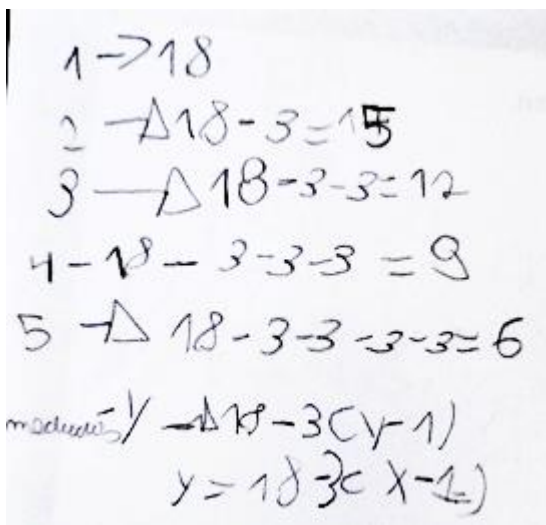 1->18
2 -> 18-3=15
3 -> 18-3-3=12
4-18-3-3-3=9
5 -> 18-3-3-3-3=6
y -> 18-3(y-1)
y=18-3(x-1)